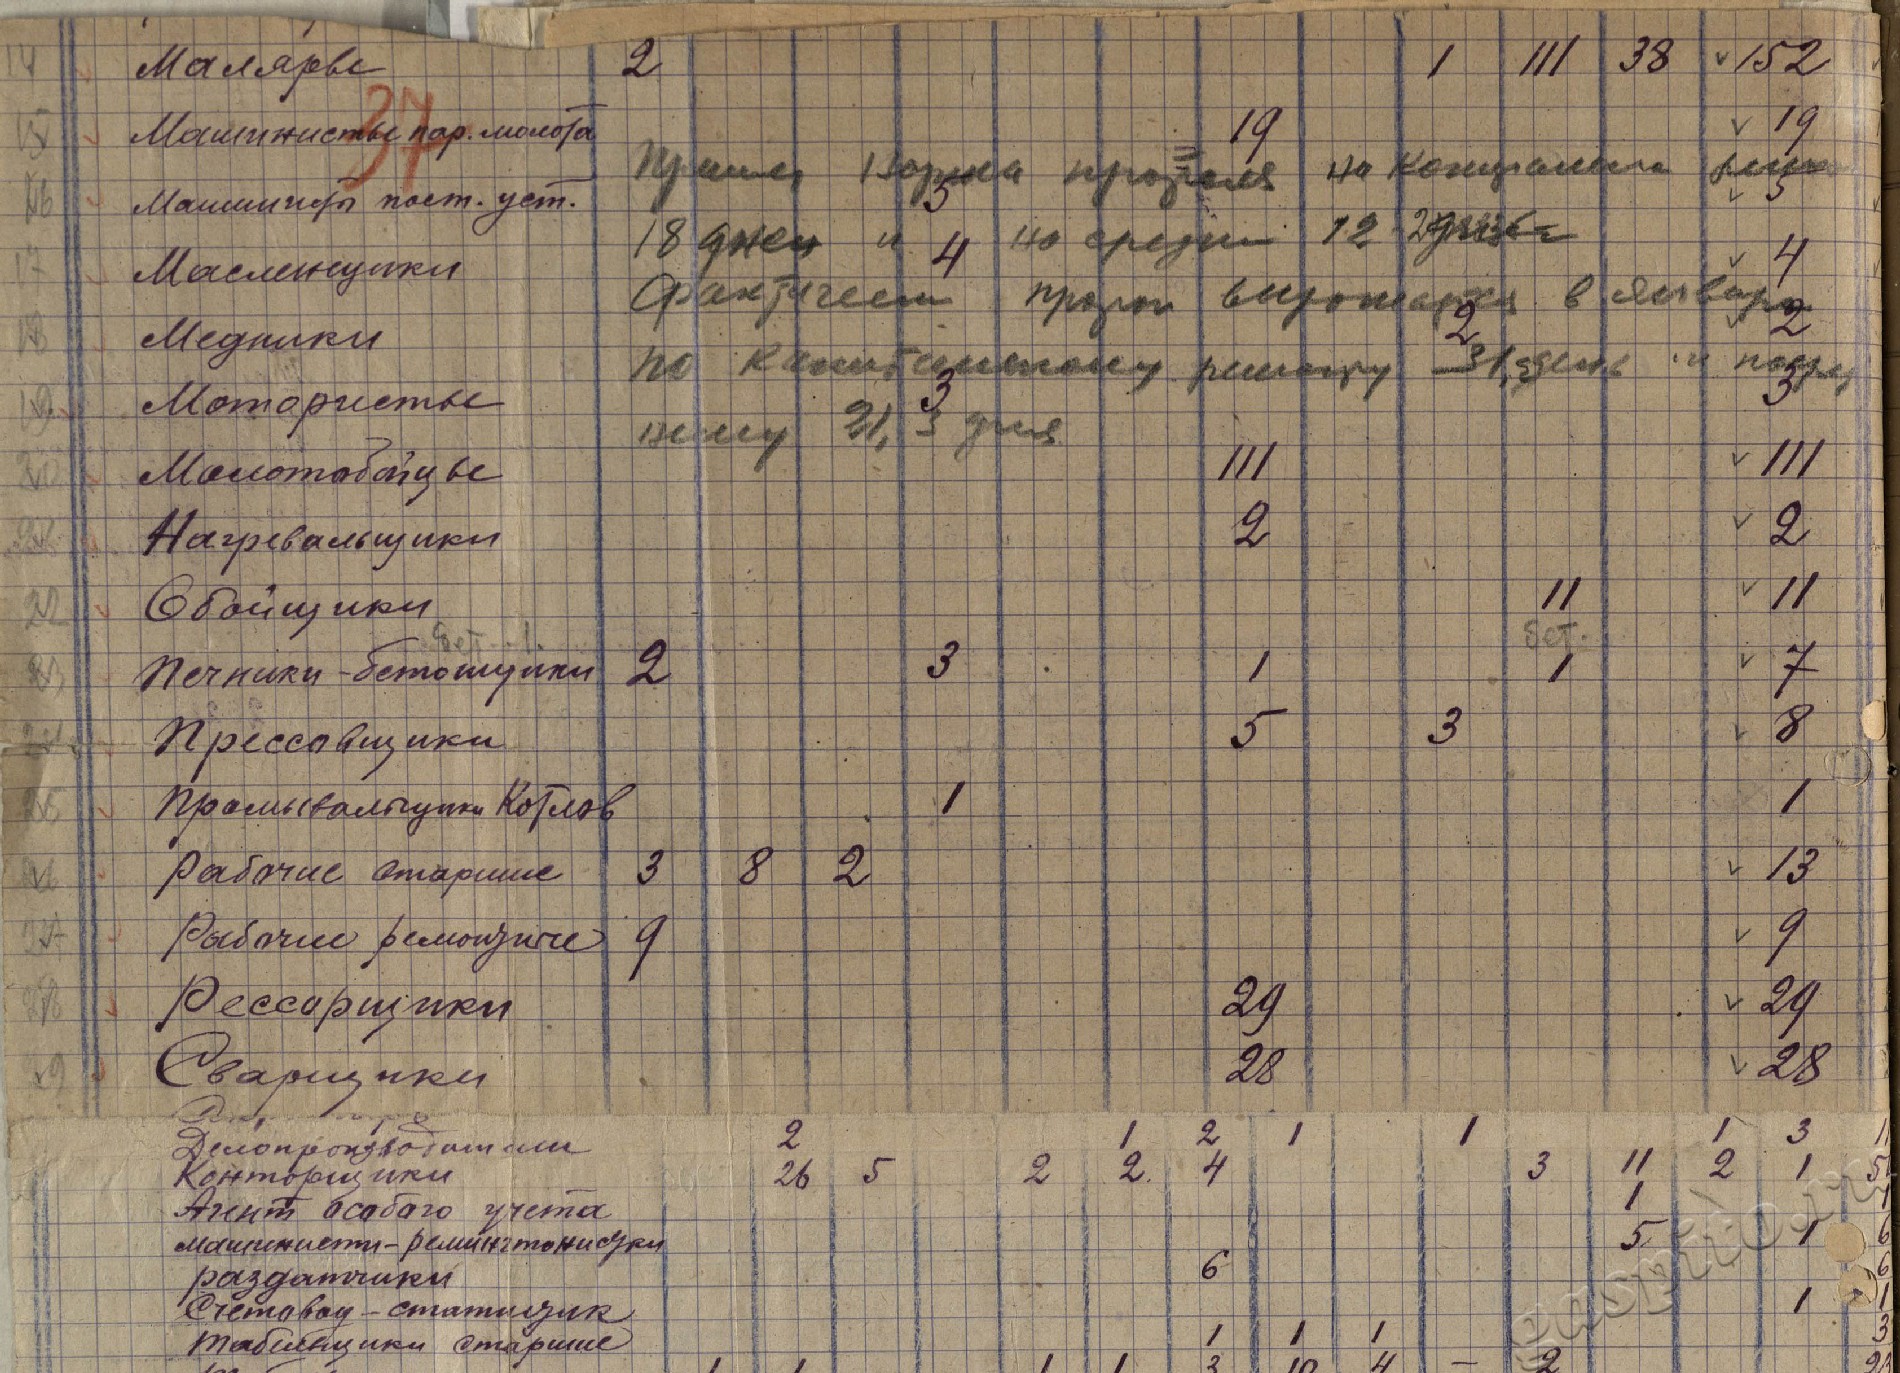 14 Маляры 2 1 111 38 152
37
15 Машинисты пар. молота 19 19
норма на
16 Машинисты пост. уст. 5 5
18 дней и на средний 12
17 Масленщики 4 4
Фактически в январе
18 Медники 2 2
по капитальному ремонту 31, день и
19 Мотористы 3 3
21,3 дня
20 Молотобойцы 111 111
21 Нагревальщики 2 2
22 Обойщики 11 11
бет. 1. бет.
23 Печники-бетонщики 2 3 1 1 7
24 Прессовщики 5 3 8
25 Промывальщики Котлов 1 1
26 Рабочие старшие 3 8 2 13
27 Рабочие ремонтные 9 9
28 Рессорщики 29 29
29 Сварщики 28 28
Делопроизводители 2 1 2 1 1 1 3 11
Конторщики 26 5 2 2 4 3 11 2 1
Агент особого учета 1 1
Машинистки-ремингтонистки 5 1 6
раздатчики 6 6
Счетовод-статистик 1 1
Табельщики старшие 1 1 1 3
1 1 1 1 3 10 4 – 2